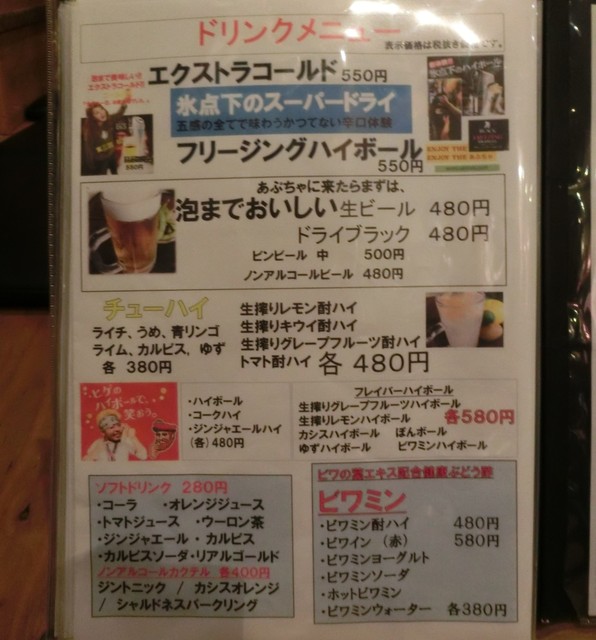 ドリンクメニュー
表示価格は税抜き
エクストラコールド 550円
氷点下のスーパードライ
五感の全てで味わうかつてない辛口体験
フリージングハイボール
550円
氷点下のハイボール
あぶちゃに来たらまずは、
泡までおいしい生ビール 480円
ドライブラック 480円
ビンビール 中 500円
ノンアルコールビール 480円
チューハイ
ライチ、うめ、青リンゴ
ライム、カルピス, ゆず
各 380円
生搾りレモン酎ハイ
生搾りキウイ酎ハイ
生搾りグレープフルーツ酎ハイ
トマト酎ハイ 各 480円
ヒゲの
ハイボールで、
笑おう。
・ハイボール
・コークハイ
・ジンジャエールハイ
(各) 480円
フレイバーハイボール
生搾りグレープフルーツハイボール
生搾りレモンハイボール 各580円
カシスハイボール ぽんボール
ゆずハイボール ビワミンハイボール
ソフトドリンク 280円
・コーラ ・オレンジジュース
・トマトジュース ・ウーロン茶
・ジンジャエール ・カルピス
・カルピスソーダ・リアルゴールド
ノンアルコールカクテル 各400円
ジントニック / カシスオレンジ
/ シャルドネスパークリング
ビワの葉エキス配合健康ぶどう酢
ビワミン
・ビワミン酎ハイ 480円
・ビワイン (赤) 580円
・ビワミンヨーグルト
・ビワミンソーダ
・ホットビワミン
・ビワミンウォーター 各380円